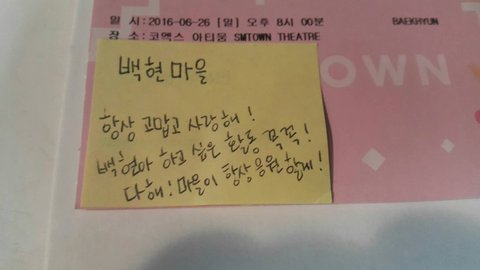 일 시 : 2016-06-26 [일] 오후 8시 00분 BAEKHYUN
장 소 : 코엑스 아티움 SMTOWN THEATRE
TOWN
백현마을
항상 고맙고 사랑해!
백현아 하고 싶은 활동 꼭꼭!
다해! 마을이 항상 응원할게!